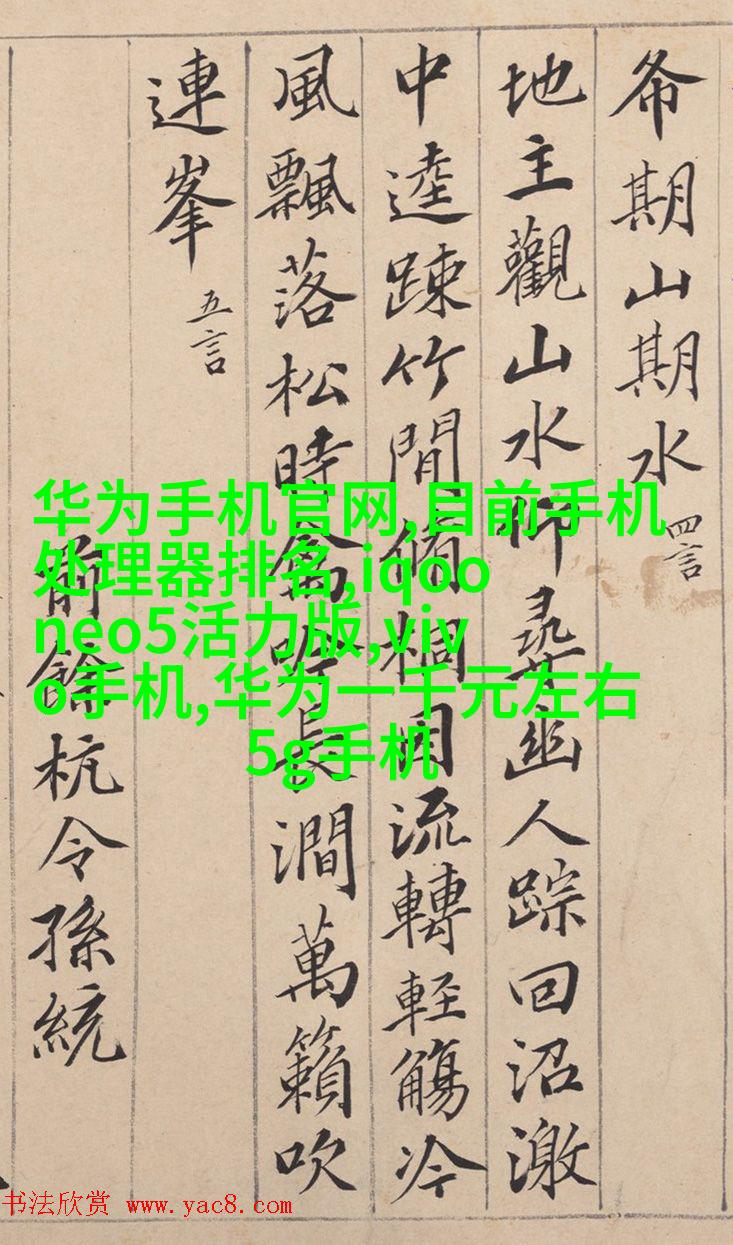 希期山期水 四言
地主觀山水仰尋幽人踪回沼激
中逵踈竹間脩桐因流轉輕觴冷
風飄落松時禽吟長澗萬籟吹
連峯 五言
前餘杭令孫統
华为手机官网,目前手机
处理器排名,iqoo
neo5活力版,viv
o手机,华为一千元左右
5g手机
书法欣赏 www.yac8.com